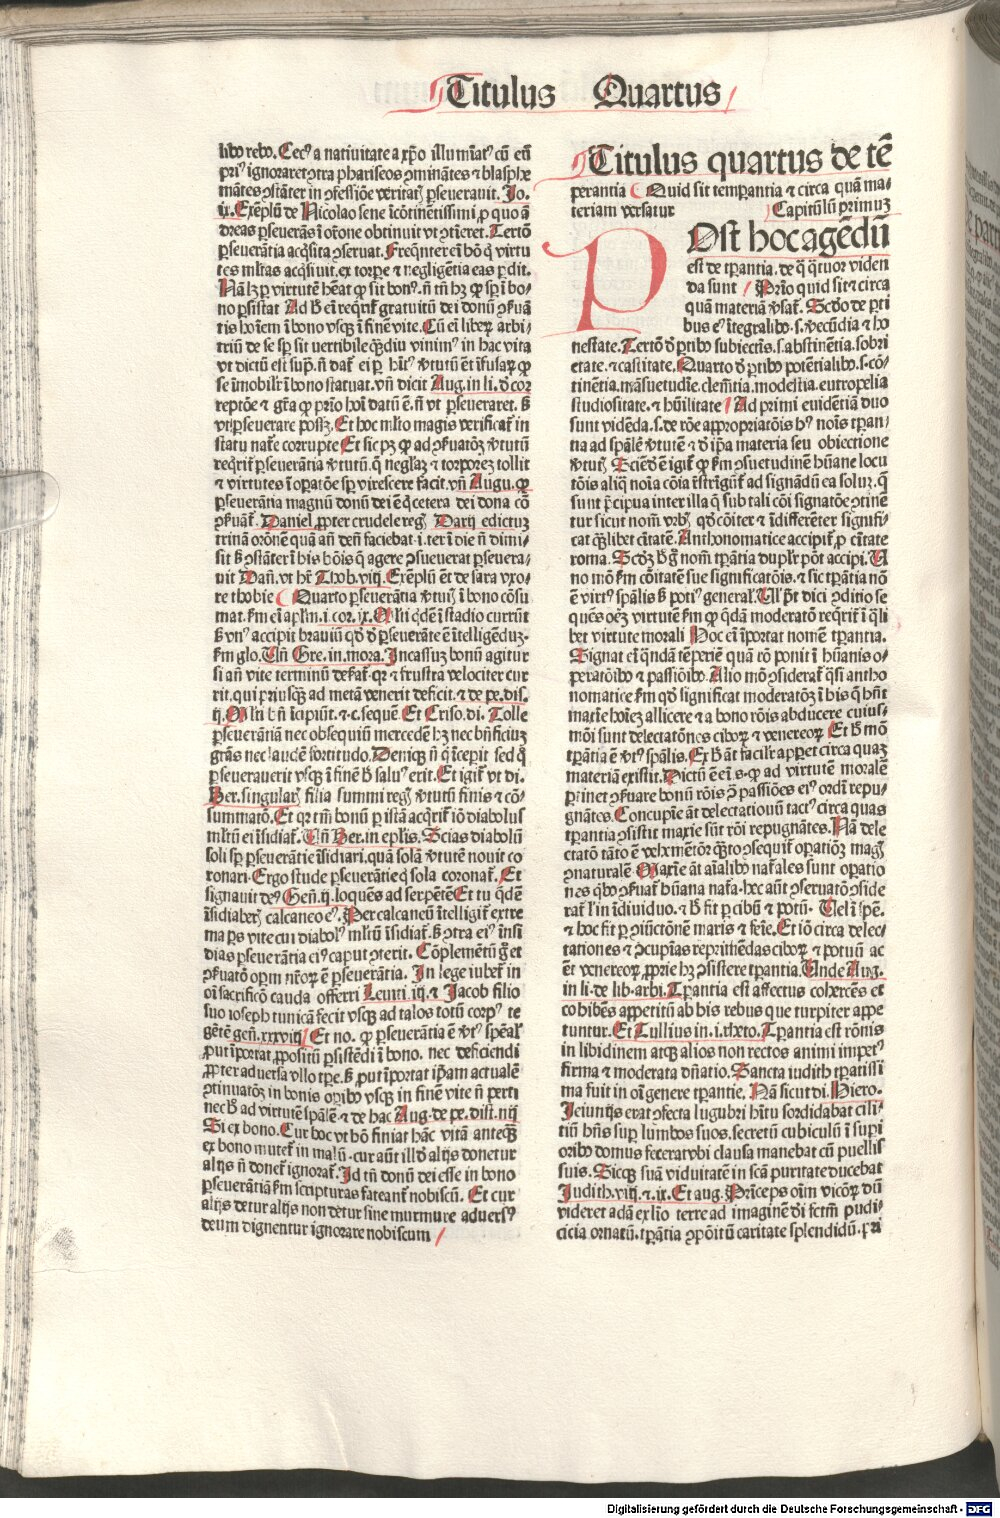 Titulus Quartus
libꝰ rebꝰ. Cecꝰ a natiuitate a xp̄o illumīatꝰ cū eū
priꝰ ignoraret ꝯtra phariseos ꝯminātes ⁊ blasphe
mātes ꝯstāter in ꝯfessiōe veritatꝭ ꝑseuerauit. Jo.
ix. Exēplū de Nicolao sene icōtinētissimi ꝓ quo ā
dreas ꝑseuerās ī orōne obtinuit vt ꝯtieret. Tertō
ꝑseuerātia acq̄sita ꝯseruat. Freq̄nter eī hō q̄ virtu
tes ml̄tas acq̄siuit. ex torpe ⁊ negligētia eas ꝑdit.
Nā lꝫ ꝑ virtutē heāt ꝙ sit bonꝰ. nō tn̄ hꝫ ꝙ sꝑ ī bo-
no ꝑsistat Ad hͨ ei reqrit᷑ gratuitū dei donū ꝯsuā
tis hoīem ī bono vsqꝫ ī finē vite. Cū eī liberꝝ arbi-
triū de se sꝑ sit vertibile q̄ꝫdiu viuimꝰ in hac vita
vt dictū est supͣ. nō dat᷑ ei ꝑ hītꝰ v̓tutū et īfusaꝝ ꝙ
se īmobilr̄ ī bono statuat. vn̄ dicit Aug. in li. d̓ cor
reptōe ⁊ gr̄a ꝙ prio hoī datū ē. nō vt ꝑseueraret. sꝫ
vt ꝑseuerare possꝫ. Et hoc ml̄to magis verificat᷑ in
statu nat᷑e corrupte Et sic pꝫ ꝙ ad ꝯsuatōꝫ v̓tutū
reqrit᷑ ꝑseuerātia v̓tutū. q̄ negl̓iaꝫ ⁊ torporeꝫ tollit
⁊ virtutes ī opatōe sꝑ virescere facit. vn̄ Augu. ꝙ
ꝑseuerātia magnū donū dei ē q̄ cetera dei dona cō
ꝯsuāt᷑. Daniel ꝓpter crudele regꝭ Darij edictuꝫ
trinā orōnē quā añ deū faciebat .i. ter ī die nō dimi-
sit sꝫ ꝯstāter ī his hōis q̄ agere ꝯsueuerat ꝑseuera-
uit Dañ. vt hr̄ Thob. viij. Exēplū ēt de sara vxo-
re thobie Quarto ꝑseuerātia v̓tutꝫ ī bono cōsu
mat. ẜm eī apl̄m. i cor. ix. Ml̄ti q̄dē ī stadio currūt
sꝫ vnꝰ accipit brauiū qd̓ d̓ ꝑseuerāte ē ītelligēduꝫ.
ẜm glo. Un̄ Gre. in. mora. Incassuꝫ bonū agitur
si añ vite terminū deserat᷑. qꝛ ⁊ frustra velociter cur
rit. qui priusqꝫ ad metā venerit deficit. ⁊ de pe. dis.
ij. Ml̄ti bn̄ īcipiūt. ⁊ c. sequē. Et Criso. di. Tolle
ꝑseuerātiā nec obsequiū mercedē hꝫ nec bn̄ficiuꝫ
grās nec laudē fortitudo. Deniqꝫ nō q̄ īcepit sed q̄
ꝑseuerauerit vsqꝫ ī finē hͨ saluꝰ erit. Et igit᷑ vt di.
Ber. singularꝭ filia summi regꝭ v̓tutū finis ⁊ cō-
summatō. Et qꝛ tm̄ bonū ꝑ istā acqrit᷑ iō diabolus
ml̄tū ei īsidiat᷑. Un̄ Ber. in eplis. Scias diabolū
soli sꝑ ꝑseuerātie īsidiari. quā solā v̓tutē nouit co
ronari. Ergo stude ꝑseuerātie q̄ sola coronat᷑. Et
signauit deꝰ Geñ. ij. loquēs ad serpētē Et tu q̄dē
īsidiaberꝭ calcaneo eꝰ. Per calcaneū ītelligit᷑ extre
ma pars vite cui diabolꝰ ml̄tū īsidiat᷑. sꝫ ꝯtra eiꝰ īsi
dias ꝑseuerātia eiꝰ caput ꝯterit. Cōplemētū gͦ et
ꝯsuatō opm nr̄oꝝ ē ꝑseuerātia. In lege iubet᷑ in
oī sacrificō cauda offerri Leuiti. iij. ⁊ Jacob filio
suo ioseph tunicā fecit vsqꝫ ad talos totū corpꝰ te
gētē geñ. xxxvij Et no. ꝙ ꝑseuerātia ē v̓tꝰ spēal̓
ꝓut īportat ꝓpositū ꝑsistēdi ī bono. nec deficiendi
ꝓpter aduersa vllo tꝑe. sꝫ ꝓut īportat ip̄am actualē
ꝯtinuatōꝫ in bonis opibꝰ vsqꝫ in finē vite nō perti
nec hͨ ad virtutē spāle ⁊ de hac Aug. de pe. dist. iiij
Si ex bono. Cur hoc vt hō finiat hāc vitā anteqꝫ
ex bono mutet᷑ in malū. cur aūt ill̓ d̓ alijs donetur
alijs nō donet᷑ ignorat᷑. Id tn̄ donū dei esse in bono
ꝑseuerātiā ẜm scripturas fateant᷑ nobiscū. Et cur
alijs detur alijs non detur sine murmure aduersꝰ
deum dignentur ignorare nobiscum
Titulus quartus de tē
perantia Quid sit temꝑantia ⁊ circa quā ma-
teriam versatur Capitulū primuꝫ
Post hoc agēdū
est de tꝑantia. de q̄ q̄tuor viden
da sunt Prio quid sit ⁊ circa
quā materiā v̓sat᷑. Scdo de ꝑti
bus eꝰ ītegralibꝰ. s. v̓ecūdia ⁊ ho
nestate. Tertō d̓ ꝑtibꝰ subiectis. s. abstinētia. sobri
etate. ⁊ castitate. Quarto d̓ ꝑtibꝰ potētialibꝰ. s. cō-
tinētia. māsuetudīe. clemētia. modestia. eutropelia
studiositate. ⁊ hūilitate Ad primi euidētiā duo
sunt vidēda. s. de rōe appropriatōis hꝰ nois tꝑan-
tia ad spālē v̓tutē ⁊ d̓ ip̄a materia seu obiectione
v̓tutꝭ. Sciēdū ē igit᷑ ꝙ ẜm ꝯsuetudinē hūane locu
tōis aliq̄ noīa cōia restrīgūt᷑ ad signādū ea soluꝫ. q̄
sunt p̄cipua inter illa q̄ sub tali cōi signatōe ꝯtinē
tur sicut nom̄ vrbꝭ qd̓ cōiter ⁊ īdifferēter signifi-
cat q̄lꝫbet ciuitatē. Anthonomatice accipit᷑ ꝓ ciuitate
roma. Scdꝫ hͨ gͦ nom̄ tꝑantia duplr̄ pōt accipi. U
no mō ẜm cōitatē sue significatōis. ⁊ sic tꝑātia nō
ē virtꝰ spālis sꝫ potiꝰ general̓. Ul̓ pōt dici ꝯditio se
quēs oēꝫ virtutē ẜm ꝙ q̄dā moderatō reqrit᷑ ī q̄li
bet virtute morali Hoc eī īportat nomē tꝑantia.
Signat eī q̄ndā tēperiē quā rō ponit ī hūanis o-
peratōibꝰ ⁊ passiōibꝰ. Alio mō ꝯsiderat᷑ q̄si antho
nomatice ẜm qd̓ significat moderatōꝫ ī his q̄ hn̄t
maxīe hoīeꝫ allicere ⁊ a bono rōis abducere cuius-
mōi sunt delectatōnes ciboꝝ ⁊ venereoꝝ Et hͨ mō
tꝑātia ē v̓tꝰ spālis. Ex hͨ āt facilr̄ appet circa quaꝫ
materiā existit. Dictū ē eī s. ꝙ ad virtutē moralē
ꝑtinet ꝯsuare bonū rōis ꝯ̄ passiōes eiꝰ ordī repu-
gnātes. Concupīe āt delectationū tactꝰ circa quas
tꝑantia ꝯsistit maxie sūt rōi repugnātes. Nā dele
ctatō tāto ē vehemētior q̄sto ꝯsequit᷑ opatiōꝫ magꝭ
ꝯnaturalē. Maxīe āt aīalibꝰ nat᷑ales sunt opatio
nes qbꝰ ꝯsuat᷑ hūana nat᷑a. hec aūt ꝯseruatō ꝯside
rat᷑ l̓ in īdiuiduo. ⁊ hͨ fit ꝑ cibū ⁊ potū. Uel ī spē.
⁊ hoc fit ꝑ ꝯiūctionē maris ⁊ feīe. Et iō circa delec-
tationes ⁊ ꝯcupīas reprimēdas ciboꝝ ⁊ potuū ac
ēt venereoꝝ ꝓprie hꝫ ꝯsistere tꝑantia. Unde Aug.
in li. de lib. arbi. Tꝑantia est affectus cohercēs et
cohibēs appetitū ab his rebus que turpiter appe
tuntur. Et Tullius in. i. rhto. Tꝑantia est rōnis
in libidinem atqꝫ alios non rectos animi impetꝰ
firma ⁊ moderata dn̄atio. Sancta iudith tꝑatissi
ma fuit in oī genere tꝑantie. Nā sicut di. Hiero.
Jeiunijs erat ꝯfecta lugubri hītu sordidabat cili-
tiū hn̄s suꝑ lumbos suos. secretū cubiculū ī supi
oribꝰ domus fecerat vbi clausa manebat cū puellis
suis. Sicqꝫ suā viduitatē in scā puritate ducebat
Judith. viij. ⁊. ix. Et aug. Princeps oīm vicōꝝ dū
videret adā ex lio terre ad imaginē di fctm̄ pudi-
cicia ornatū. tꝑātia ꝯpōitū caritate splendidū. pri
Digitalisierung gefördert durch die Deutsche Forschungsgemeinschaft - DFG